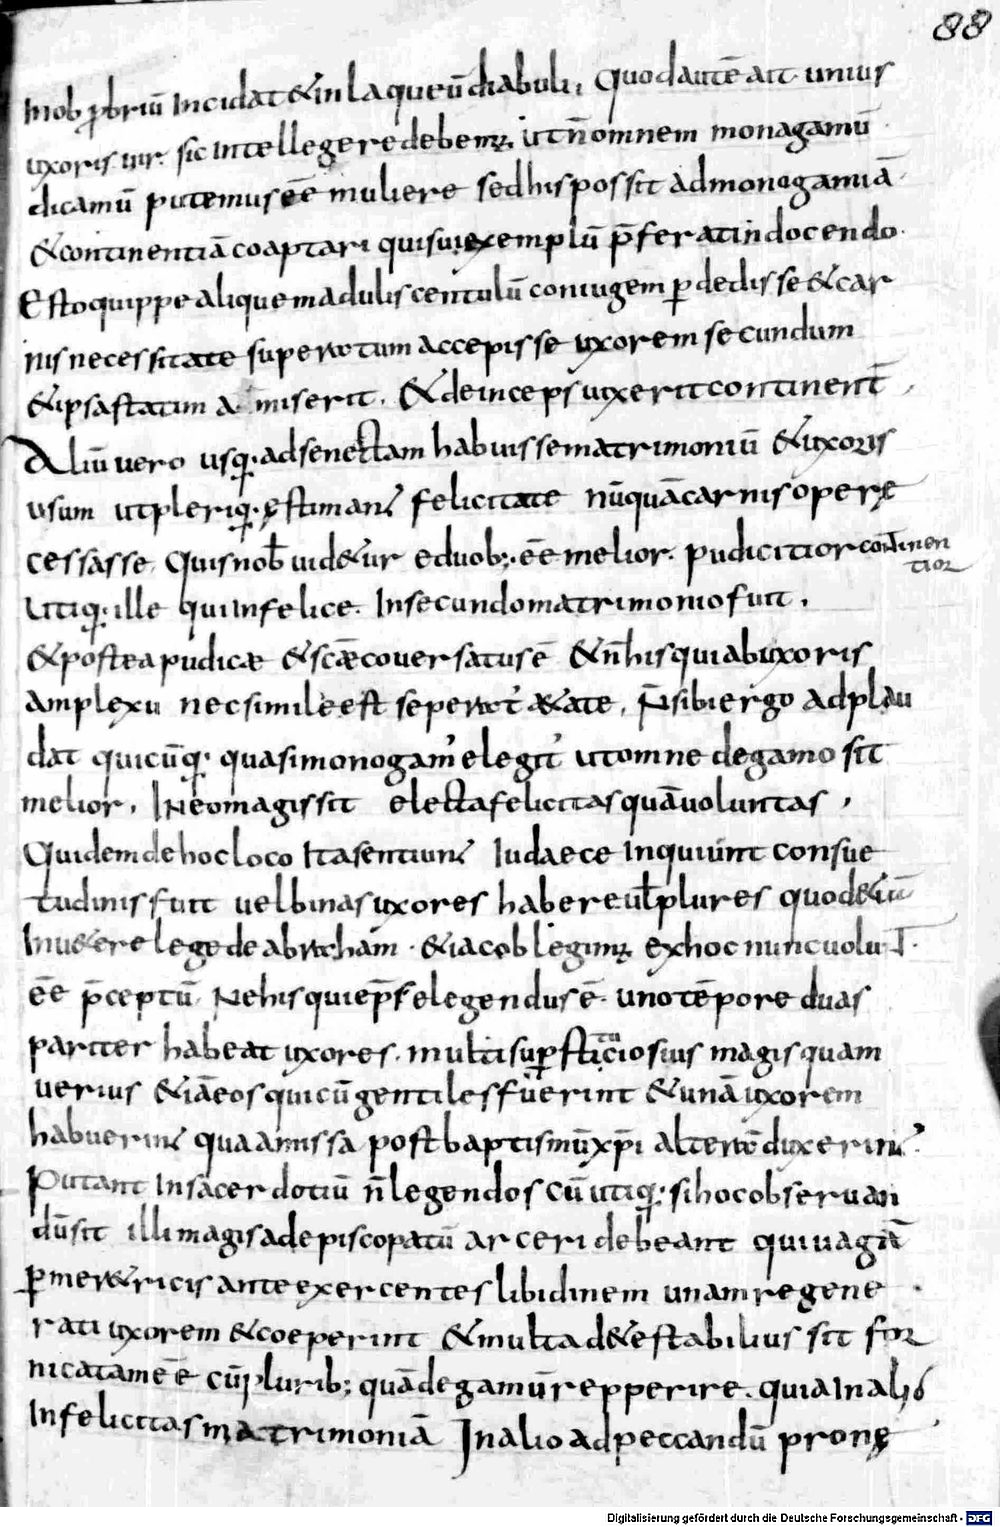 88
Inobꝓbriū Incidat &in laqueū diabuli, Quod autē ait unius
uxoris uir. sic Intellegere debemꝰ. ut n̄ omnem monagamū
dicamū putemus eē muliere sed his possit ad monogamiā
& continentiā coaptari qui sui exemplū p̄ferat in docendo.
Esto quippe alique madulis centulū coniugem ꝑdedisse & car
nis necessitate superatum accepisse uxorem secundum
& ipsa statim a miserit, & deinceps uixerit continent̄,
Aliū uero usq; ad senectam habuisse matrimoniū & uxoris
usum ut pleriq; ęstimant felicitate nūquā carnis operę
cessasse, Quis nob̄ uid&ur e duob; eē melior. pudicitior continen
tior
Utiq; ille qui Infelice. In secundo matrimonio fuit,
& postea pudicæ & scæ couersatus ē & n̄ his qui ab uxoris
amplexu nec simile est seperat &ate, N̄ sibi ergo adplau
dat quicūq; quasi monogam' elegit' ut omne degamo sit
melior, In eo magis sit electa felicitas quā uoluntas,
Quidem de hoc loco Ita sentiunt Iudaece Inquiunt consue
tudinis fuit uel binas uxores habere ul̄ plures quod &iā
In u&ere lege de abraham. & iacob legimꝰ ex hoc nunc uolūt.
eē p̄ceptū, Ne his qui ep̄s elegendus ē. uno tēpore duas
pariter habeat uxores. multi suꝑsticiosius magis quam
tu
uerius &iā eos qui cū gentiles fuerint & unā uxorem
habuerint qua amissa post baptismū xp̄i alterā duxerint.
Putant In sacerdotiū n̄ legendos cū utiq; si hoc obseruan
dū sit illi magis ad episcopatū arceri debeant qui uagā
ꝑ mer&ricis ante exercentes libidinem unam regene
rati uxorem &coeperint & multa d&estabilius sit for
nicatam eē cū plurib; quā degamū repperire. quia In alio
Infelicitas matrimoniā In alio ad peccandū pronę
Digitalisierung gefördert durch die Deutsche Forschungsgemeinschaft - DFG